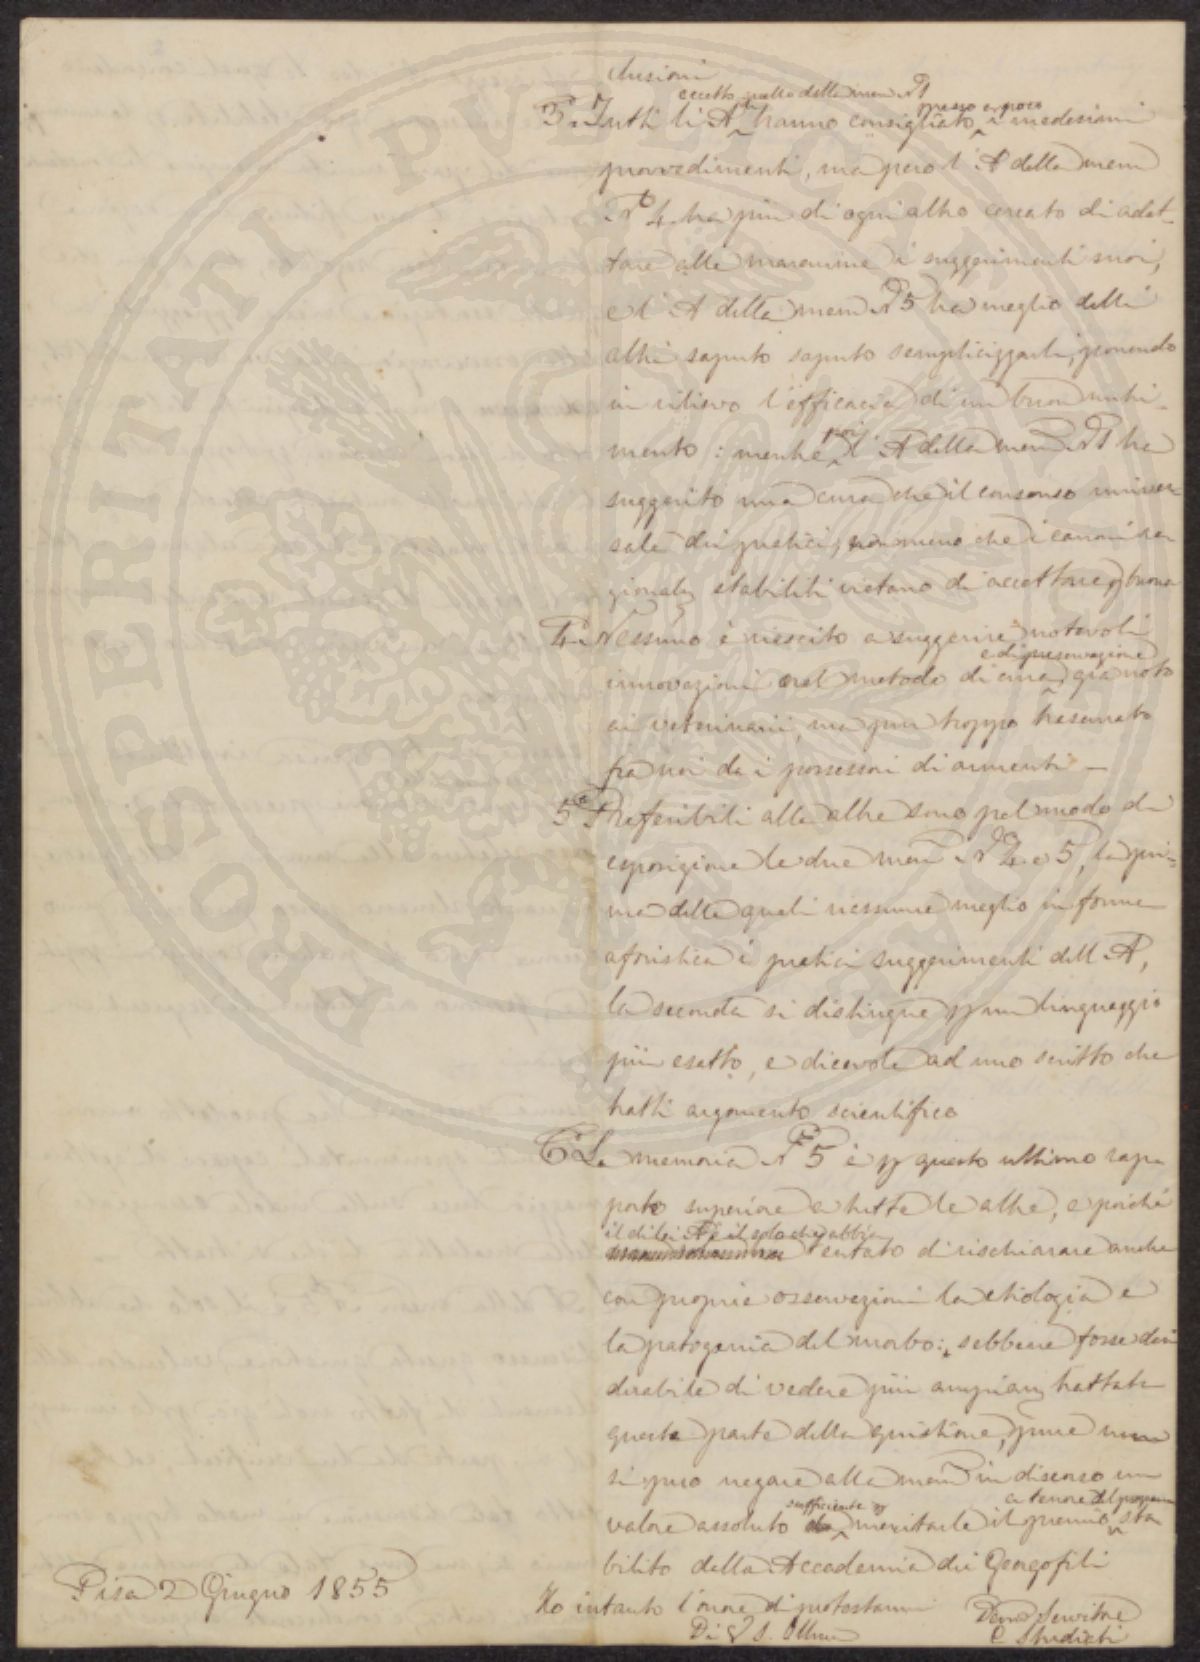 clusioni
eccetto quello della mem N° 1
presso a poco
3°. Tutti li A hanno consigliato i medesimi
provvedimenti, ma pero l'A della mem
N° 4 ha piu di ogni altro cercato di adat-
tare alle maremme i suggerimenti suoi,
e l'A della mem N° 5 ha meglio delli
altri saputo saputo semplicizzarli, ponendo
in rilievo l'efficacia di un buon nutri-
mento: mentre poi l'A della mem N° 1 ha
suggerito una cura che il consenso univer-
sale dei pratici, non meno che i canoni ra-
zionali stabiliti vietano di accettare buona
4°. Nessuno è riescito a suggerire notevoli
e di preservazione
innovazioni nel metodo di cura già noto
ai veterinarii, ma pur troppo trascurato
fra noi da i possessori di armenti —
5° Preferibili alle altre sono pel modo di
esposizione le due mem N° 4 e 5, la pri-
ma delle quali riassume meglio in forma
aforistica i pratici suggerimenti dell A,
la seconda si distingue p un linguaggio
più esatto, e dicevole ad uno scritto che
tratti argomento scientifico
6° La memoria N° 5 è p questo ultimo rap-
porto superiore a tutte le altre, e poichè
il di lei A è il solo che abbia
tentato di rischiarare anche
con proprie osservazioni la etiologia e
la patogenia del morbo: sebbene fosse desi
derabile di vedere più ampiam trattata
questa parte della quistione, pure non
si puo negare alla mem in discorso un
sufficiente p
a tenore del programma
valore assoluto meritarle il premio sta
bilito della Accademia dei Georgofili
Pisa 2 Giugno 1855
Ho intanto l'onore di protestarmi
Di V S. Illma
Devmo Servitore
C Studiati